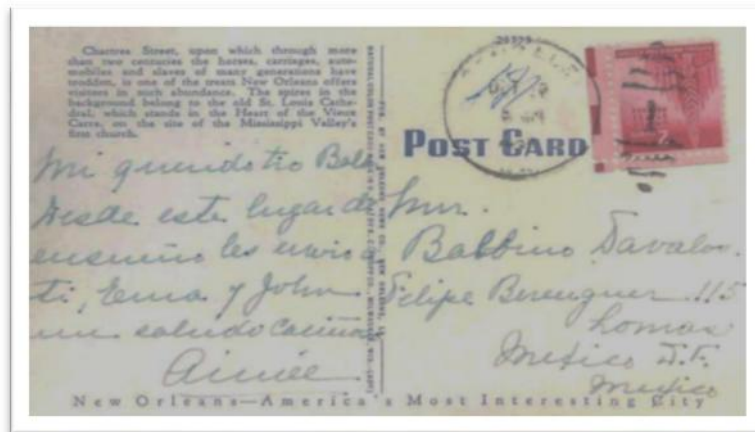 Chartres Street, upon which through more
than two centuries the horses, carriages, auto-
mobiles and slaves of many generations have
trodden, is one of the treats New Orleans offers
visitors in such abundance. The spires in the
background belong to the old St. Louis Cathe-
dral, which stands in the Heart of the Vieux
Carre, on the site of the Mississippi Valley's
first church.
POST CARD
Mi querido tio Balb
Desde este lugar de
ensueño les envio a
ti, Ema y John
un saludo cariños
Aimée
Mr.
Balbino Davalos
Felipe Berenguer 115
Lomas
Mexico D.F.
Mexico
New Orleans—America's Most Interesting City